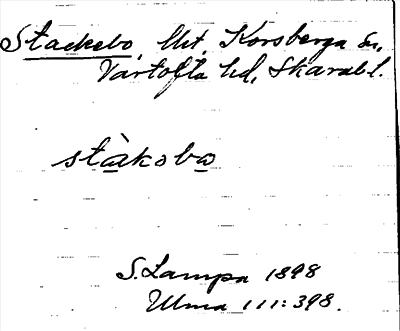 Stackebo, Utt. Korsberga sn,
Vartofta hd, Skarab l.
stàkobo
S. Lampa 1898
Ulma 111:398.